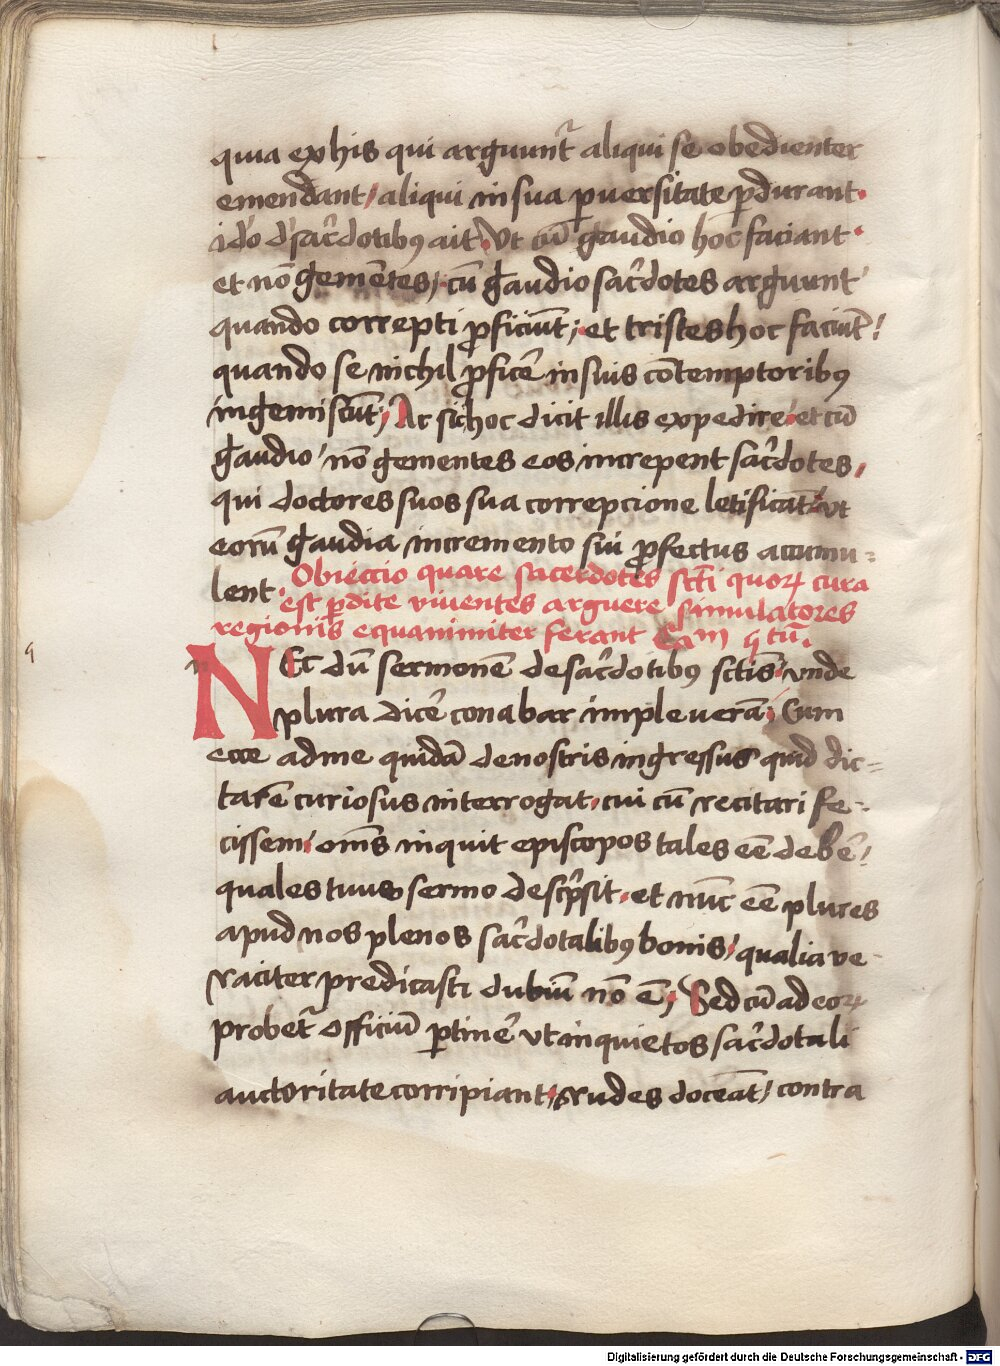 quia ex his qui arguunt᷑ aliqui se obedienter
emendant / aliqui in sua ꝑuersitate ꝑdurant.
ido᷑ d᷑ sac᷑dotibꝰ ait. Vt cū gaudio hoc faciant.
et nō gemētes / cū gaudio sac᷑dotes arguunt
quando correpti ꝓficiūt ; et tristes hoc faciūt !
quando se nichil ꝓfice᷑ in suis cōtemptoribꝰ
ingemiscūt ; Ac si hoc dicit illis expedire . et cū
gaudio / nō gementes eos increpent sac᷑dotes /
qui doctores suos sua correpcione letificāt . ut
eorū gaudia incremento sui ꝓfectus accumu=
lent.
Obieccio quare sacerdotes sc̄ti quoꝝ cura
est ꝑdite viuentes arguere simulatores
regionis equanimiter ferant Cam
n
NEC dū sermonē de sac᷑dotibꝰ sc̄tis . vnde
plura dice᷑ conabar impleuerā ; Cum
ecce ad me quidā de nostris ingressus quid dic=
tarē curiosus interrogat . cui cū recitari fe=
cissem . om̄s inquit episcopos tales eē debē᷑ /
quales tuus sermo desc͛psit . et nūc eē plures
apud nos plenos sac᷑dotalibꝰ bonis / qualia ve=
raciter predicasti dubiū nō ē ; Sed cū ad eoꝝ
probet᷑ officiū ꝑtine᷑ vt inquietos sac᷑dotali
auctoritate corripiant / rudes doceāt / contra
Digitalisierung gefördert durch die Deutsche Forschungsgemeinschaft - DFG